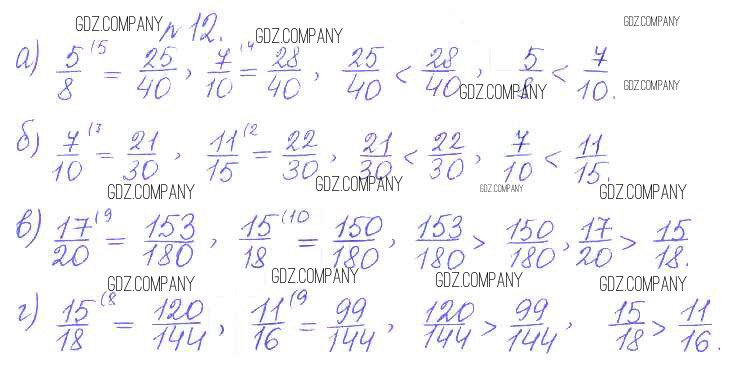 GDZ.COMPANY № 12. GDZ.COMPANY GDZ.COMPANY
а) 5/8 (5 = 25/40, 7/10 (4 = 28/40, 25/40 < 28/40, 5/8 < 7/10.
GDZ.COMPANY GDZ.COMPANY
б) 7/10 (3 = 21/30, 11/15 (2 = 22/30, 21/30 < 22/30, 7/10 < 11/15.
GDZ.COMPANY GDZ.COMPANY GDZ.COMPANY GDZ.COMPANY
в) 17/20 (9 = 153/180, 15/18 (10 = 150/180, 153/180 > 150/180, 17/20 > 15/18.
GDZ.COMPANY GDZ.COMPANY GDZ.COMPANY GDZ.COMPANY
г) 15/18 (8 = 120/144, 11/16 (9 = 99/144, 120/144 > 99/144, 15/18 > 11/16.